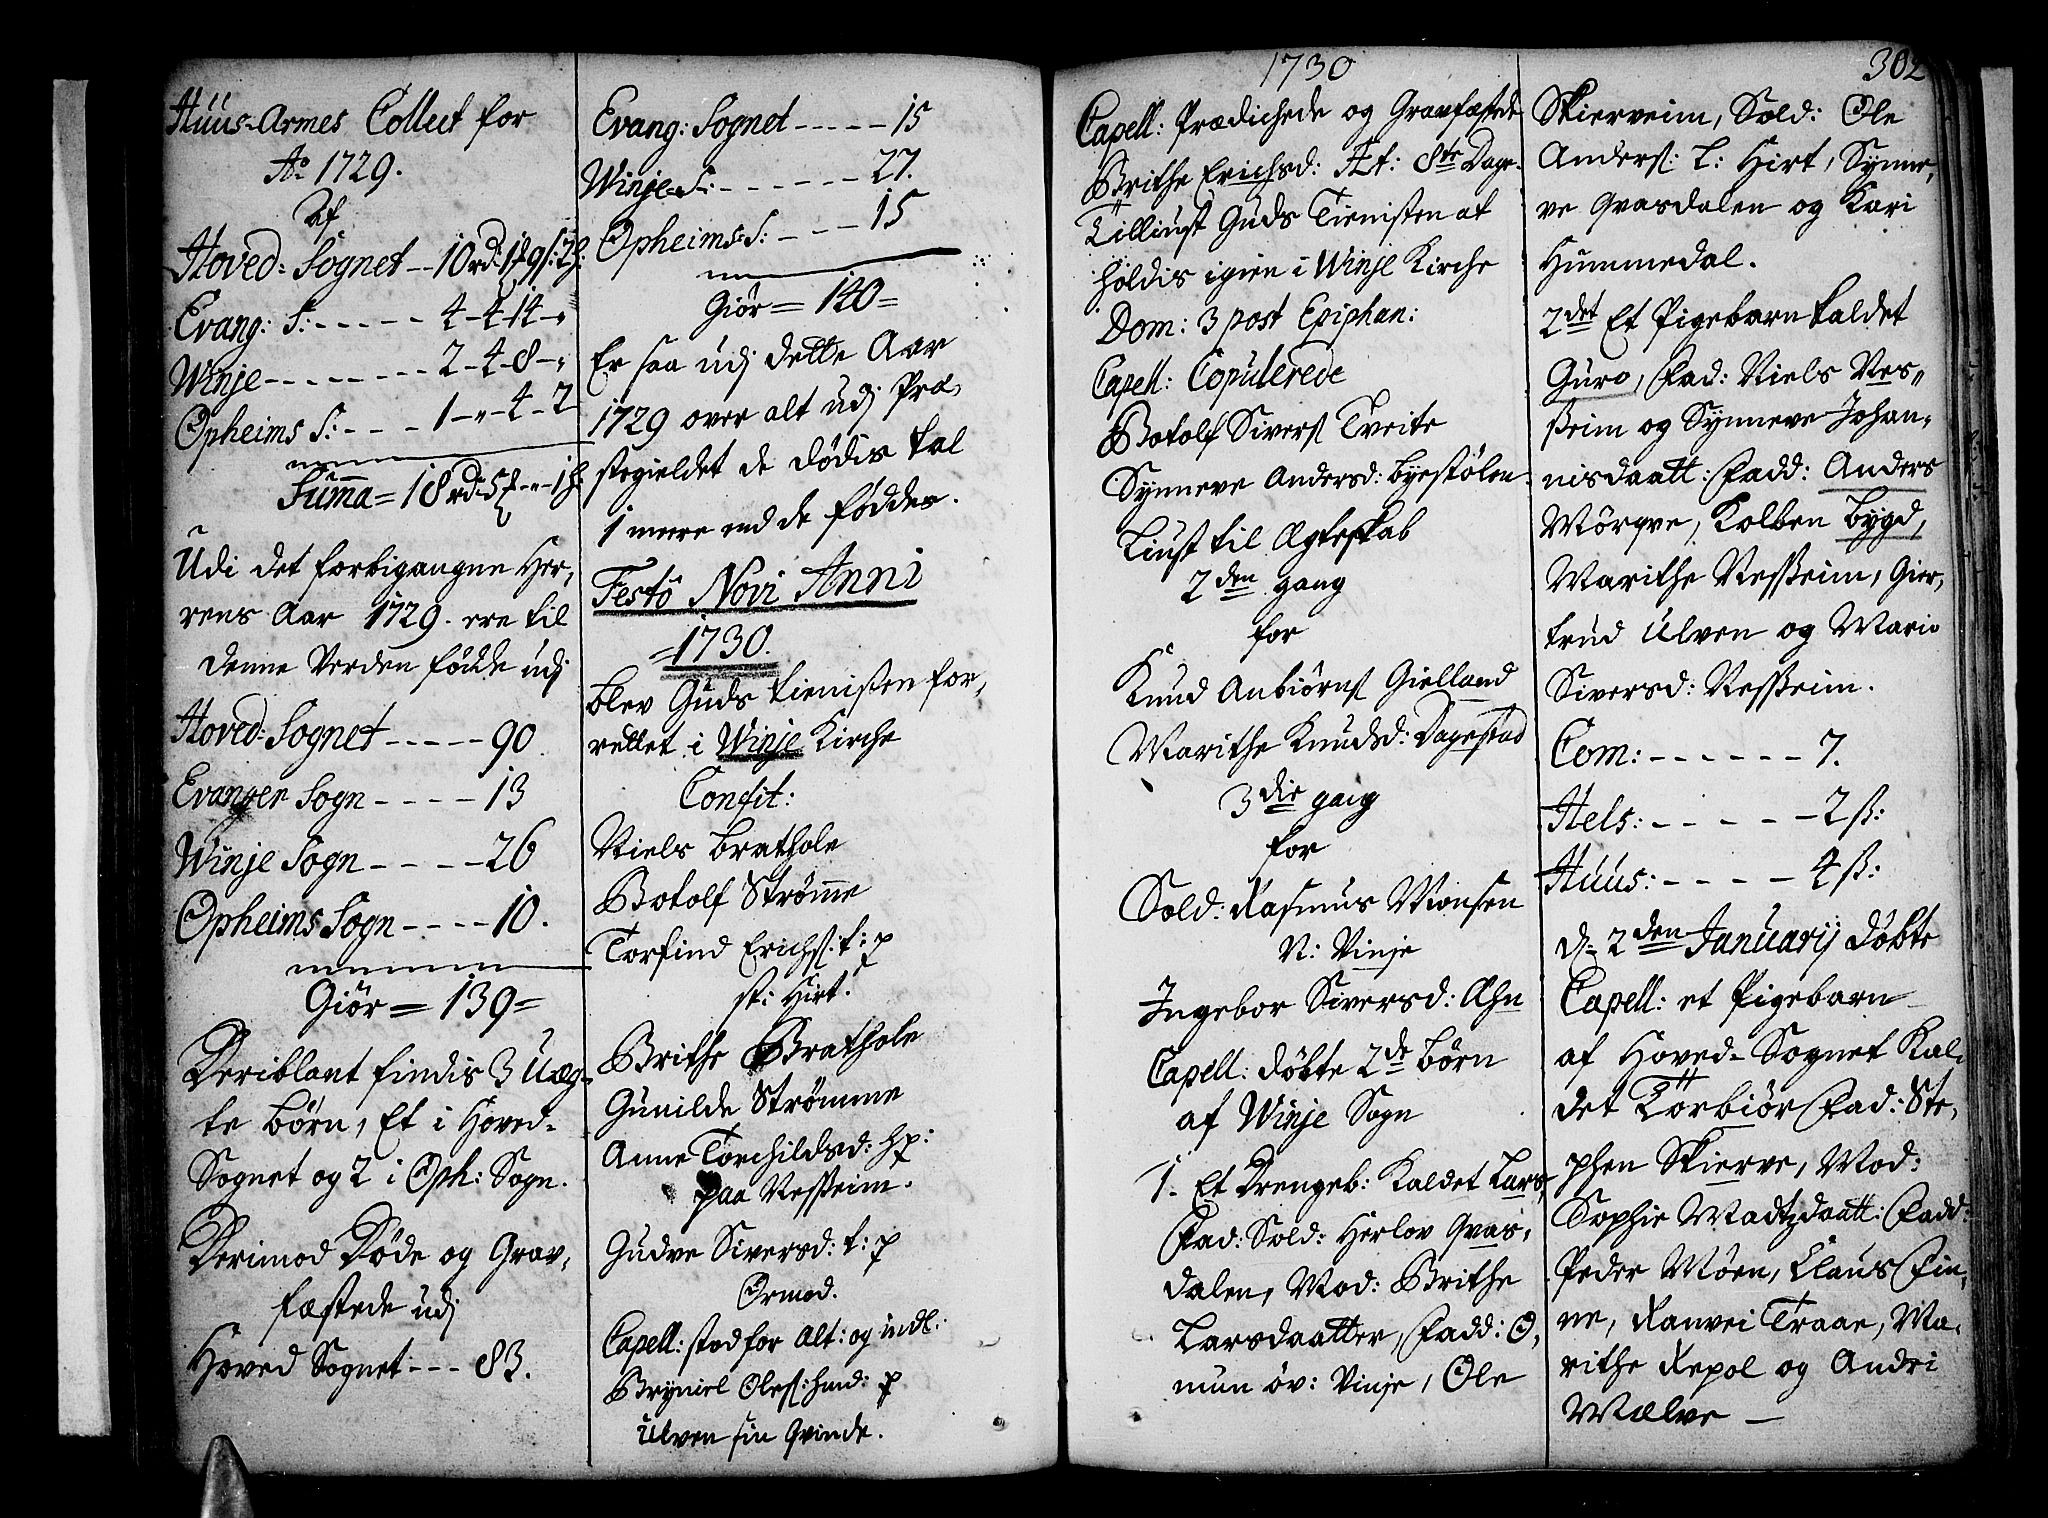 Huus-Armes Collect for
Ao 1729.
Af
Hoved: Sognet -- 10 rd: 1 9 s: 2
Evang: S: - - - - - 4 - 4 - 14 -
Winje - - - - - - - - 2 - 4 - 8 -
Opheims S: - - - 1 - - 4 - 2
Summa = 18 rd: 5 - - 1
Udi det forbigangne Her,
rens Aar 1729. ere til
denne Verden fødde udj
Hoved: Sognet - - - - - 90.
Evanger Sogn - - - - - 13
Winje Sogn - - - - - 26
Opheims Sogn - - - - 10.
Giör = 139 =
Deriblant findis 3 Uæg-
te børn, Et i Hoved-
Sognet og 2 i Oph: Sogn.
Derimod Døde og Grav,
fæstede udj
Hoved Sognet - - - 83.
Evang: Sognet - - - - - 15
Winje S: - - - - - - - 27.
Opheims S: - - - - 15
Giör = 140 =
Er saa udj dette Aar
1729 over alt udj Præ,
stegieldet de dødis tal
1 mere end de föddes.
Festo Novi Anni
= 1730.
blev Guds tienisten for,
rettet i Winje Kirche
Confit:
Niels Brathole
Botolf Strømme
Torfind Erichs: t: p
st: Hirt.
Brithe Brathole
Gunilde Strømme
Anne Torchildsd: hp:
paa Nesheim.
Gudve Siversd: t: p
Ormod.
Capell: stod for Alt: og indl:
Bryniel Oles: hmd: p
Ulven sin Qvinde.
1730
Capell: Prædichede og Gravfæstede
Brithe Erichsd: Æt: 8te Dage.
Tilliust Guds Tienisten at
holdis igien i Winje Kirche
Dom: 3 post Epiphan:
Capell: Copulerede
Botolf Sivers Tveite
Synneve Andersd: Byestølen
Liust til Ægteskab
2den gang
for
Knud Anbiörns Gielland
Marithe Knudsd: Dagestad
3die gang
for
Sold: Rasmus Monsen
N: Vinje
Ingebor Siversd: Æhn
Capell: döbte 2de börn
af Winje Sogn
1. Et Drengeb: Kaldet Lars,
Fad: Sold: Herlov Qvas,
dalen, Mod: Brithe
Larsdaatter, Fadd: O,
mun öv: Vinje, Ole
302
Skierveim, Sold: Ole
Anders: t: Hirt, Synne,
ve Qvasdalen og Kari
Hummedal.
2det Et Pigebarn kaldet
Guro, Fad: Niels Nes,,
heim og Synneve Johan,
nisdaatt: Fadd: Anders
Mörqve, Kolben bygd,
Marithe Nesheim, Gier,
trud Ulven og Mari
Siversd: Nesheim.
Com: - - - - - - 7.
Hels: - - - - - - 2 ß:
Huus: - - - - - 4 ß:
d= 2den Januarij döbte
Capell: et Pigebarn
af Hoved-Sognet Kal,
det Torbiör Fad: Ste,
phen Skierve, Mod:
Sophie Madtzdaatt: Fadd:
Peder Möen, Claus Fin,
ne, Ranvei Traae, Ma,
rithe Repol og Andri
Mælve -